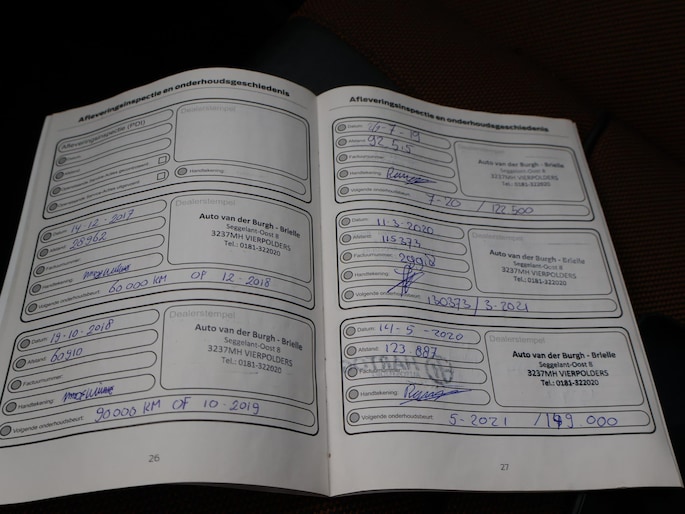 Afleveringsinspectie en onderhoudsgeschiedenis
Afleveringsinspectie (PDI)
Dealerstempel
Handtekening:
Datum: 14-12-2017
Afstand: 28962
Handtekening:
Volgende onderhoudsbeurt: 60000 KM OF 12-2018
Dealerstempel
Auto van der Burgh - Brielle
Seggelant-Oost 8
3237MH VIERPOLDERS
Tel.: 0181-322020
Datum: 19-10-2018
Afstand: 60910
Factuurnummer:
Handtekening:
Volgende onderhoudsbeurt: 90000 KM OF 10-2019
Dealerstempel
Auto van der Burgh - Brielle
Seggelant-Oost 8
3237MH VIERPOLDERS
Tel.: 0181-322020
26
Afleveringsinspectie en onderhoudsgeschiedenis
Datum: 16-7-19
Afstand: 92 515
Factuurnummer:
Handtekening:
Volgende onderhoudsbeurt: 7-20 / 122 500
Auto van der Burgh - Brielle
Seggelant-Oost 8
3237MH VIERPOLDERS
Tel.: 0181-322020
Datum: 11-3-2020
Afstand: 115373
Factuurnummer:
Handtekening:
Volgende onderhoudsbeurt: 130373/3-2021
Auto van der Burgh - Brielle
Seggelant-Oost 8
3237MH VIERPOLDERS
Tel.: 0181-322020
Datum: 14-5-2020
Afstand: 123 887
Handtekening:
Volgende onderhoudsbeurt: 5-2021 / 000
Auto van der Burgh - Brielle
Seggelant-Oost 8
3237MH VIERPOLDERS
Tel.: 0181-322020
27